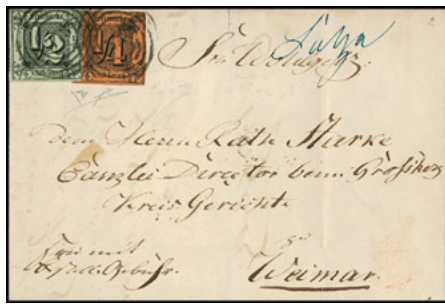 ½ ¼
Sr. Wohlgeb.
dem Herrn Rath Starke
Canzlei Director beim Grosherz
Kreis Gerichte
zu
frei mit
Weimar.